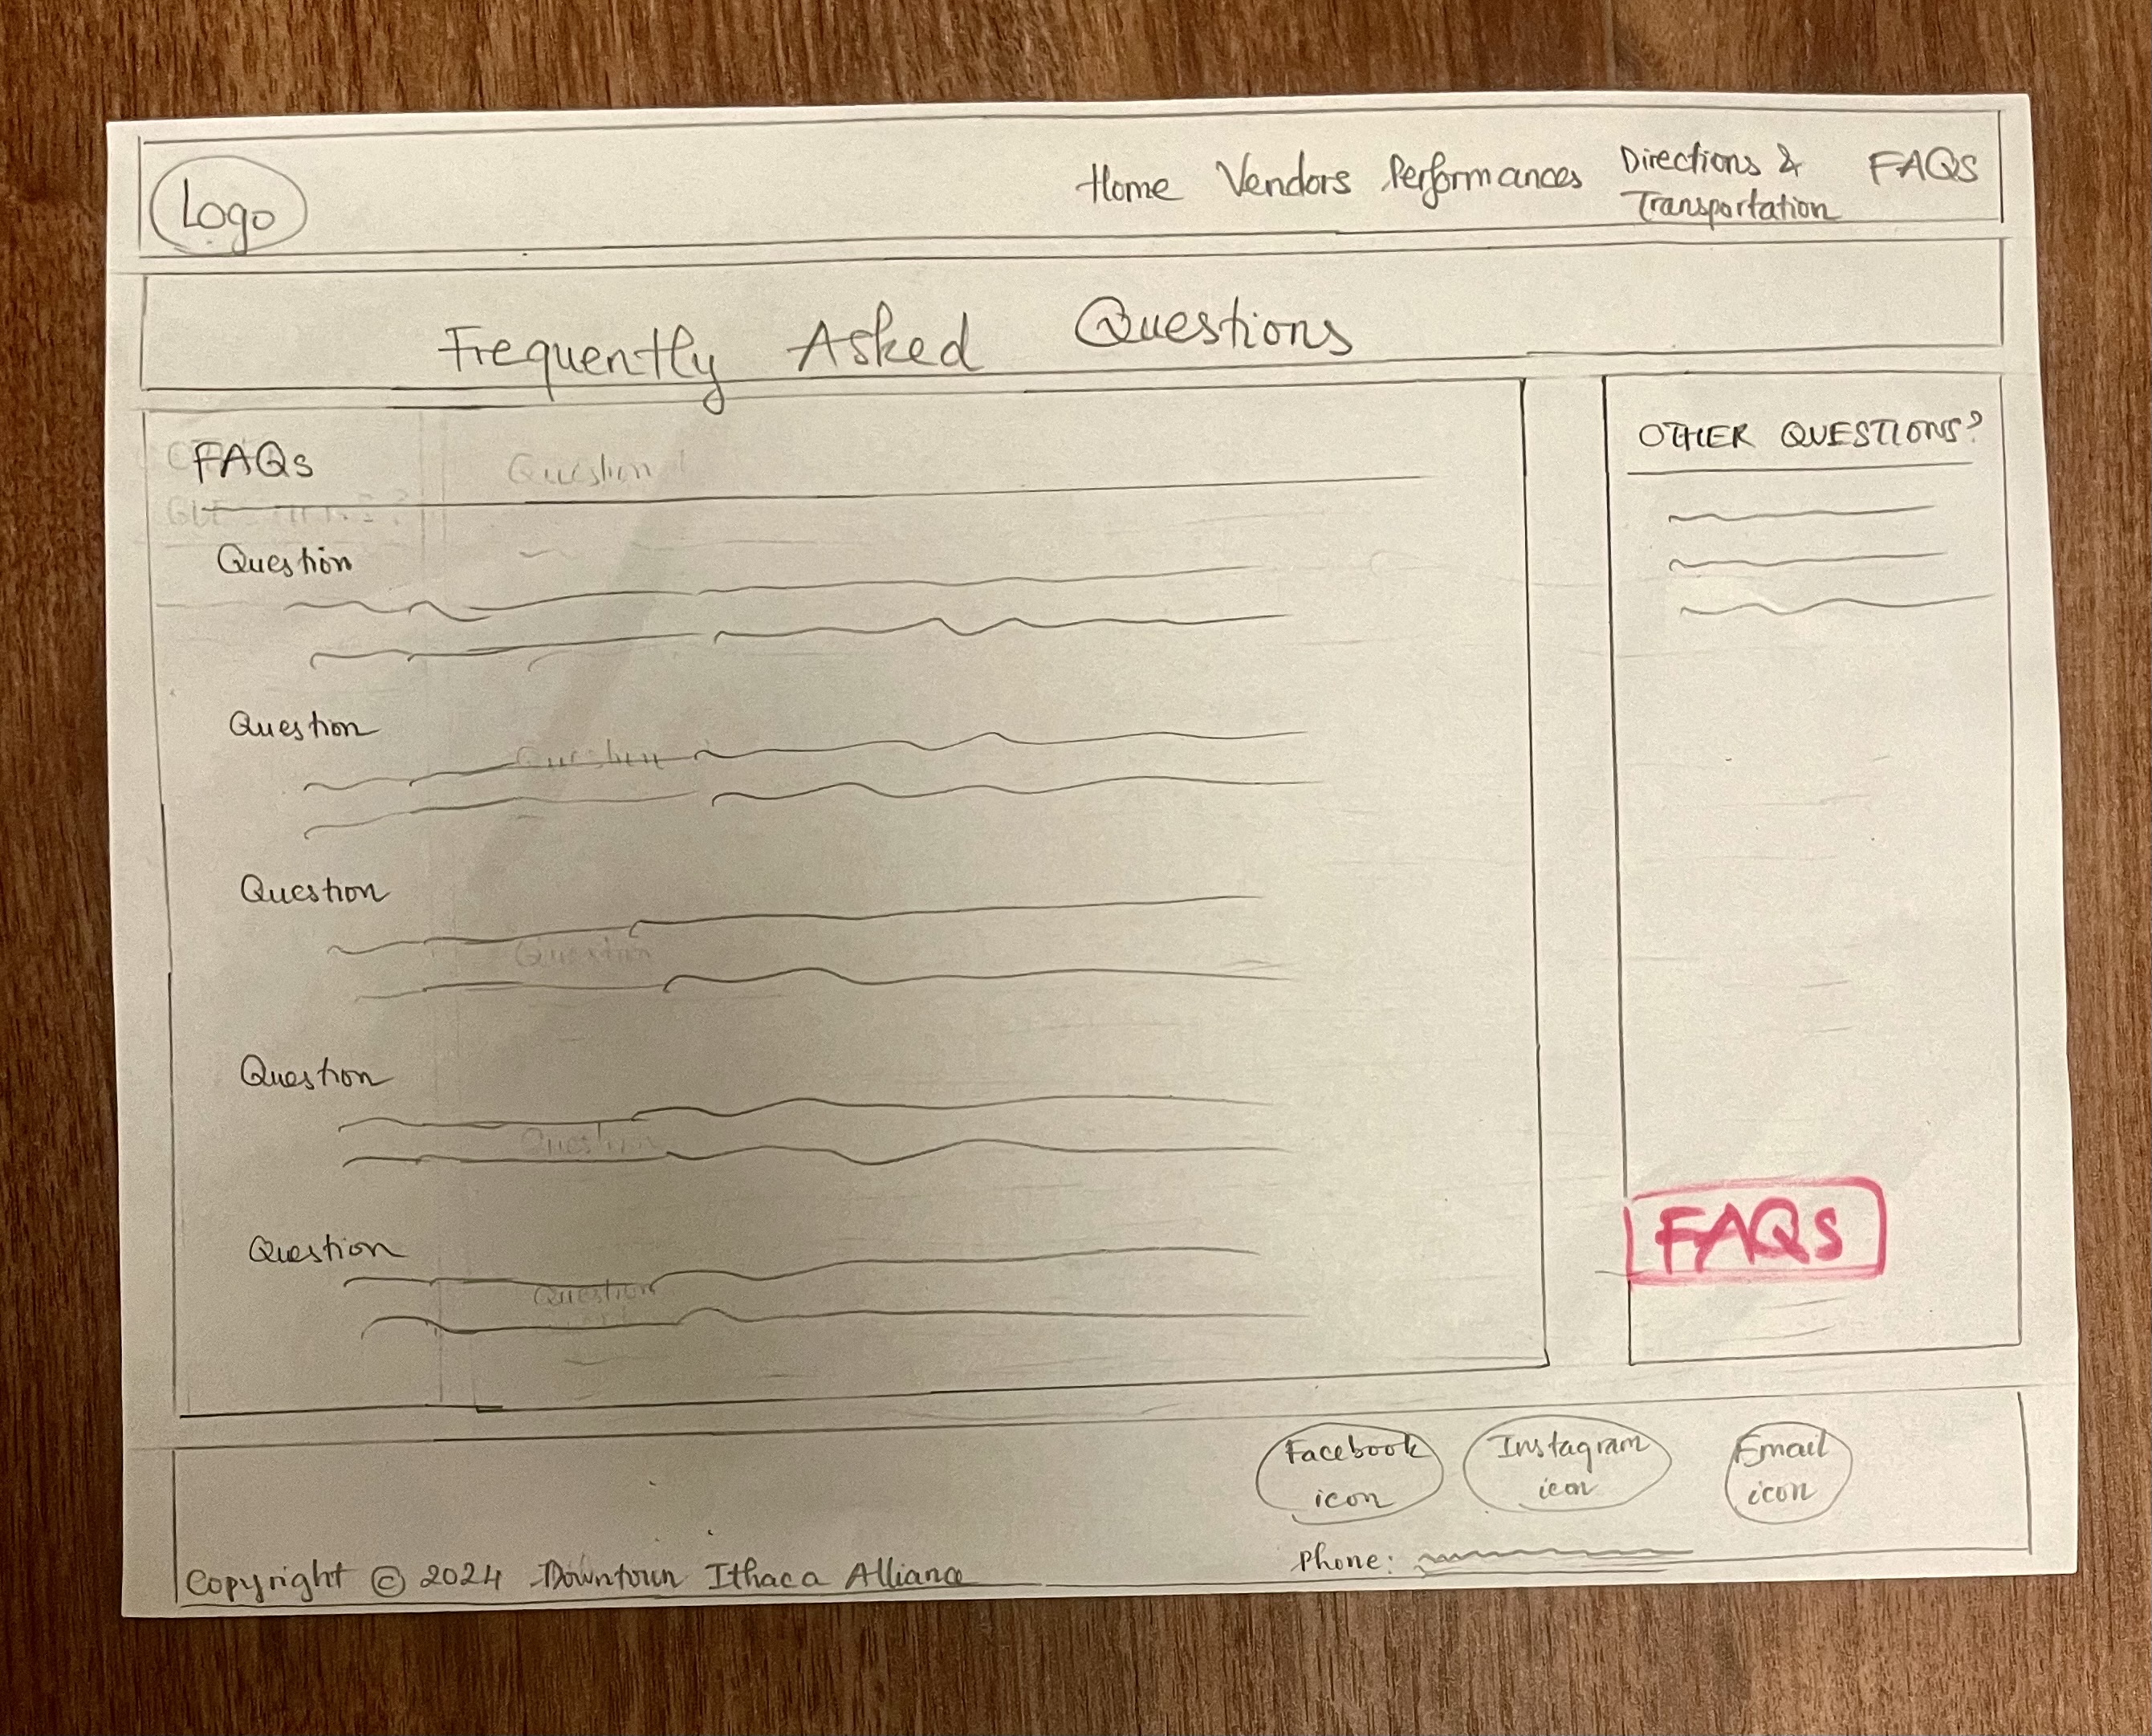 Logo
Home Vendors Performances Directions &
Transportation
FAQS
Frequently Asked Questions
FAQs
Question 1
Question
Question
Question
Question
Question
Question
Question
Question
Question
OTHER QUESTIONS?
FAQS
Facebook
icon
Instagram
icon
Email
icon
Phone:
Copyright © 2024 Downtown Ithaca Alliance